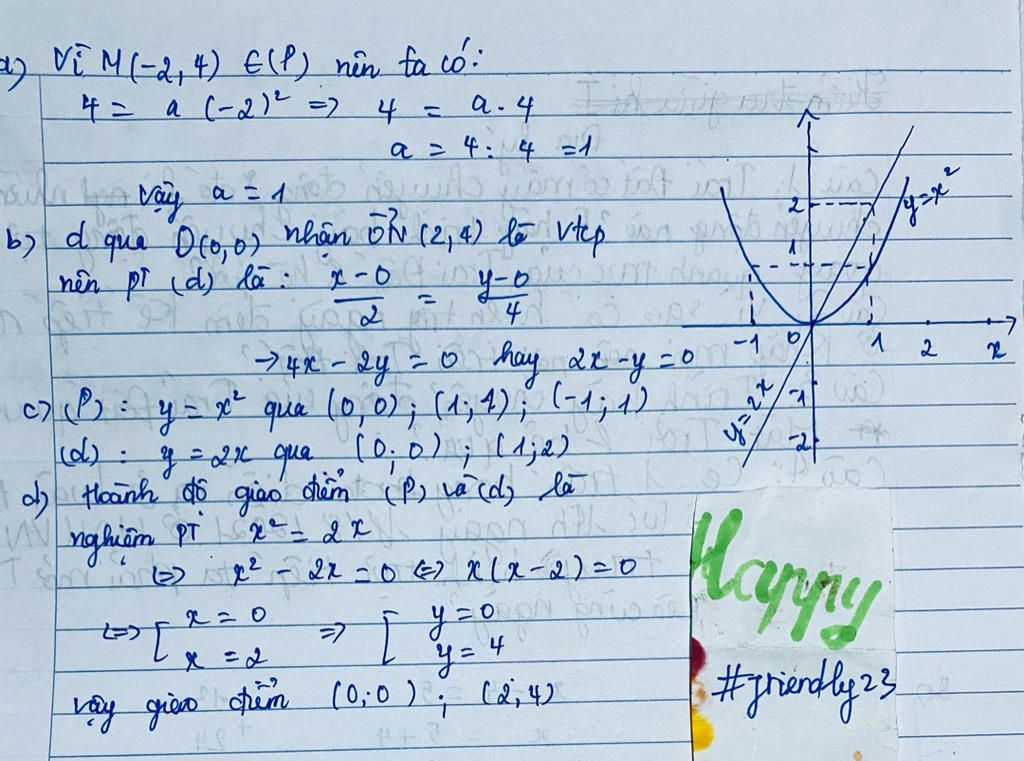 a) Vì M(-2,4) ∈(P) nên ta có:
4 = a (-2)² => 4 = a . 4
a = 4 : 4 = 1
Vậy a = 1
b) d qua O(0,0) nhận ON (2,4) là vtcp
nên PT (d) là: x-0/2 = y-0/4
→ 4x - 2y = 0 hay 2x - y = 0
c) (P) : y = x² qua (0,0) ; (1;1) ; (-1;1)
(d) : y = 2x qua (0;0) ; (1;2)
d) Hoành độ giao điểm (P) và (d) là
nghiệm PT x² = 2x
<=> x² - 2x = 0 <=> x(x-2) = 0
<=> [ x = 0 => [ y = 0
x = 2 y = 4
Vậy giao điểm (0;0) ; (2;4)
2
y=x²
1
-1 0 1 2 x
-1
y=2x
-2
Happy
#friendly23